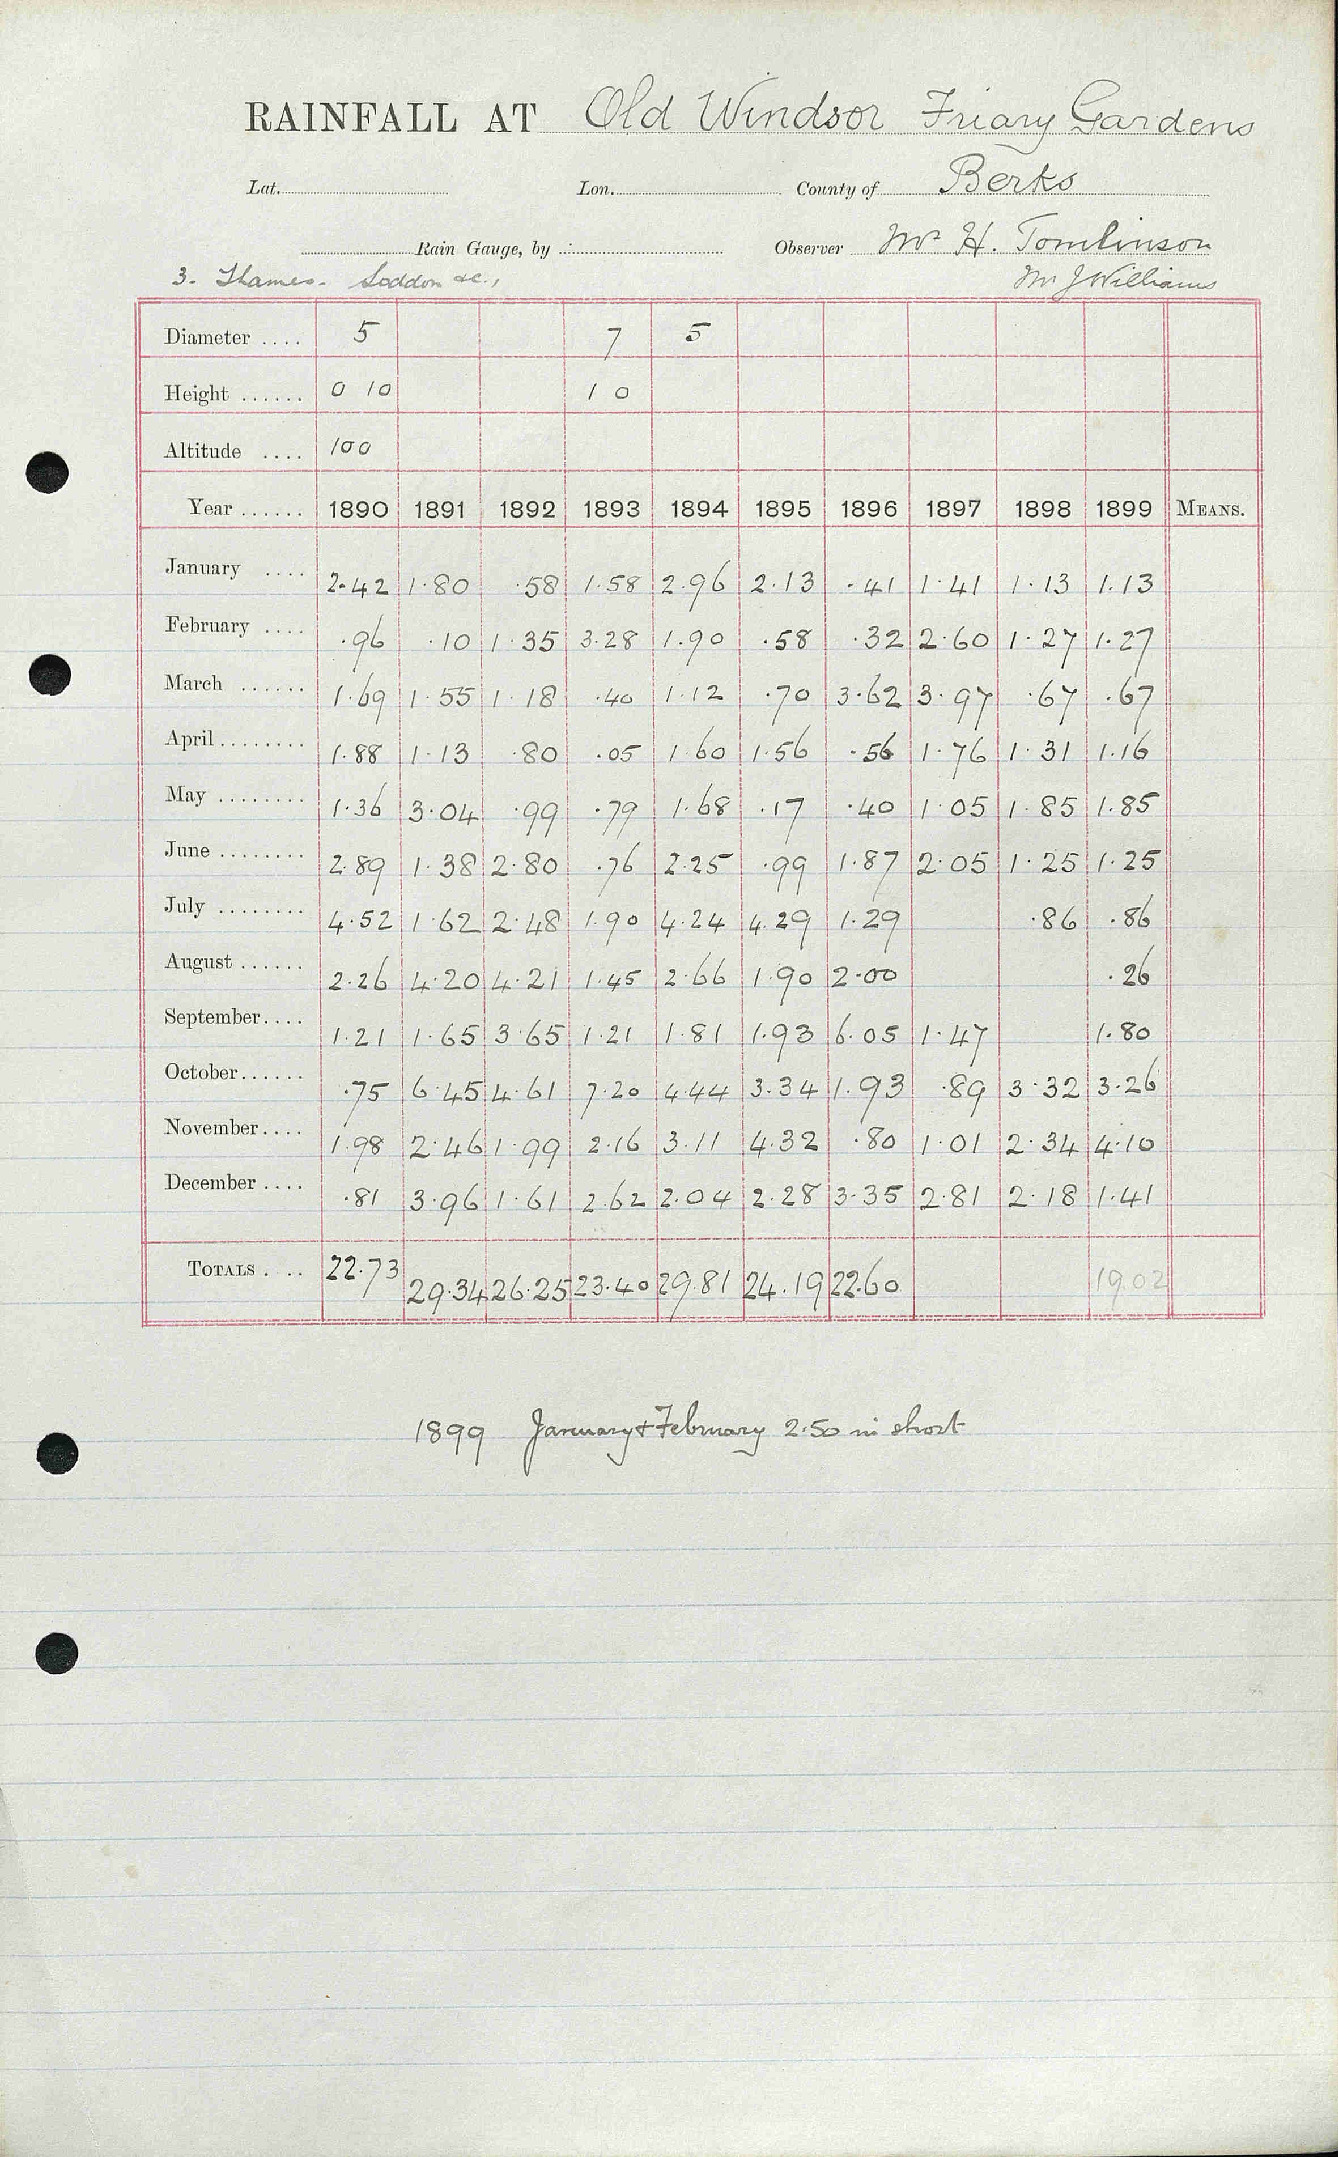 RAINFALL AT Old Windsor Friary Gardens
Lat. Lon. County of Berks
Rain Gauge, by Observer Mr H. Tomlinson
3. Thames. Loddon &c., Mr J Williams
Diameter .... 5 7 5
Height ...... 0 10 1 0
Altitude .... 100
Year ...... 1890 1891 1892 1893 1894 1895 1896 1897 1898 1899 MEANS.
January .... 2.42 1.80 .58 1.58 2.96 2.13 .41 1.41 1.13 1.13
February .... .96 .10 1.35 3.28 1.90 .58 .32 2.60 1.27 1.27
March ...... 1.69 1.55 1.18 .40 1.12 .70 3.62 3.97 .67 .67
April ........ 1.88 1.13 .80 .05 1.60 1.56 .56 1.76 1.31 1.16
May ........ 1.36 3.04 .99 .79 1.68 .17 .40 1.05 1.85 1.85
June ........ 2.89 1.38 2.80 .76 2.25 .99 1.87 2.05 1.25 1.25
July ........ 4.52 1.62 2.48 1.90 4.24 4.29 1.29 .86 .86
August ...... 2.26 4.20 4.21 1.45 2.66 1.90 2.00 .26
September.... 1.21 1.65 3.65 1.21 1.81 1.93 6.05 1.47 1.80
October...... .75 6.45 4.61 7.20 4.44 3.34 1.93 .89 3.32 3.26
November.... 1.98 2.46 1.99 2.16 3.11 4.32 .80 1.01 2.34 4.10
December .... .81 3.96 1.61 2.62 2.04 2.28 3.35 2.81 2.18 1.41
TOTALS .... 22.73 29.34 26.25 23.40 29.81 24.19 22.60 1902
1899 January & February 2.50 in short